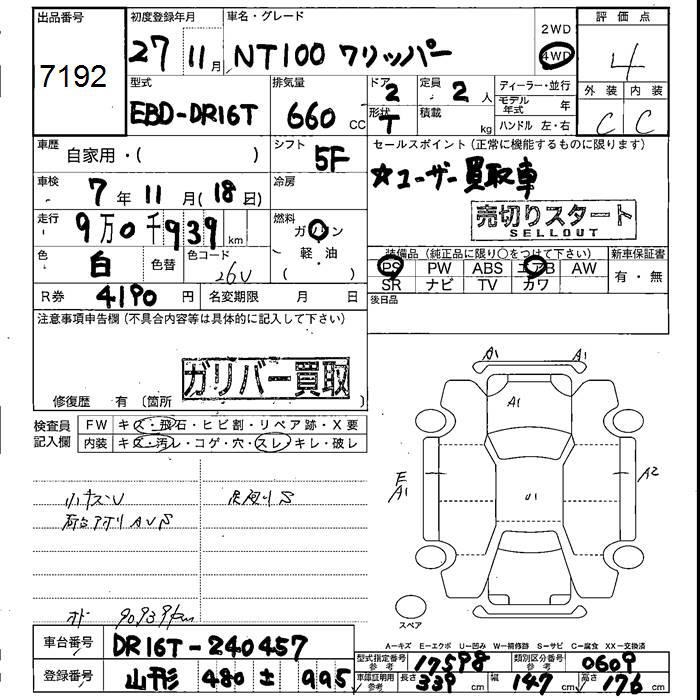 出品番号
7192
初度登録年月
27 11月
車名・グレード
NT100 クリッパー
2WD
4WD
評価点
4
外装 内装
C C
型式
EBD-DR16T
排気量
660 CC
ドア
2
形状
T
定員
2 人
積載 kg
ディーラー・並行
モデル年式 年
ハンドル 左・右
車歴
自家用・( )
シフト
5F
セールスポイント(正常に機能するものに限ります)
☆ユーザー買取車
売切りスタート
SELLOUT
車検
7年11月(18日)
冷房
走行
9万0千939km
燃料
ガソリン
軽・油
( )
色
白
色替
色コード
26U
装備品(純正品に限り○をつけて下さい)
PS PW ABS エアB AW
SR ナビ TV カワ
新車保証書
有・無
R券
4190円
名変期限 月 日
後日品
注意事項申告欄(不具合内容等は具体的に記入して下さい)
ガリバー買取
修復歴 有(箇所 )
検査員記入欄
FW キズ・飛石・ヒビ割・リペア跡・X要
内装 キズ・汚レ・コゲ・穴・スレ・キレ・破レ
小キズU
荷台
AUS
S
90939km
A1
A1
A1
E
A1
U1
A2
スペア
A−キズ E−エクボ U−凹み W−補修跡 S−サビ C−腐食 XX−交換済
車台番号
DR16T-240457
登録番号
山形 480 ± 995
型式指定番号 参考
17598
類別区分番号 参考
0609
車庫証明用 参考
長さ 339 cm
幅 147 cm
高さ 176 cm